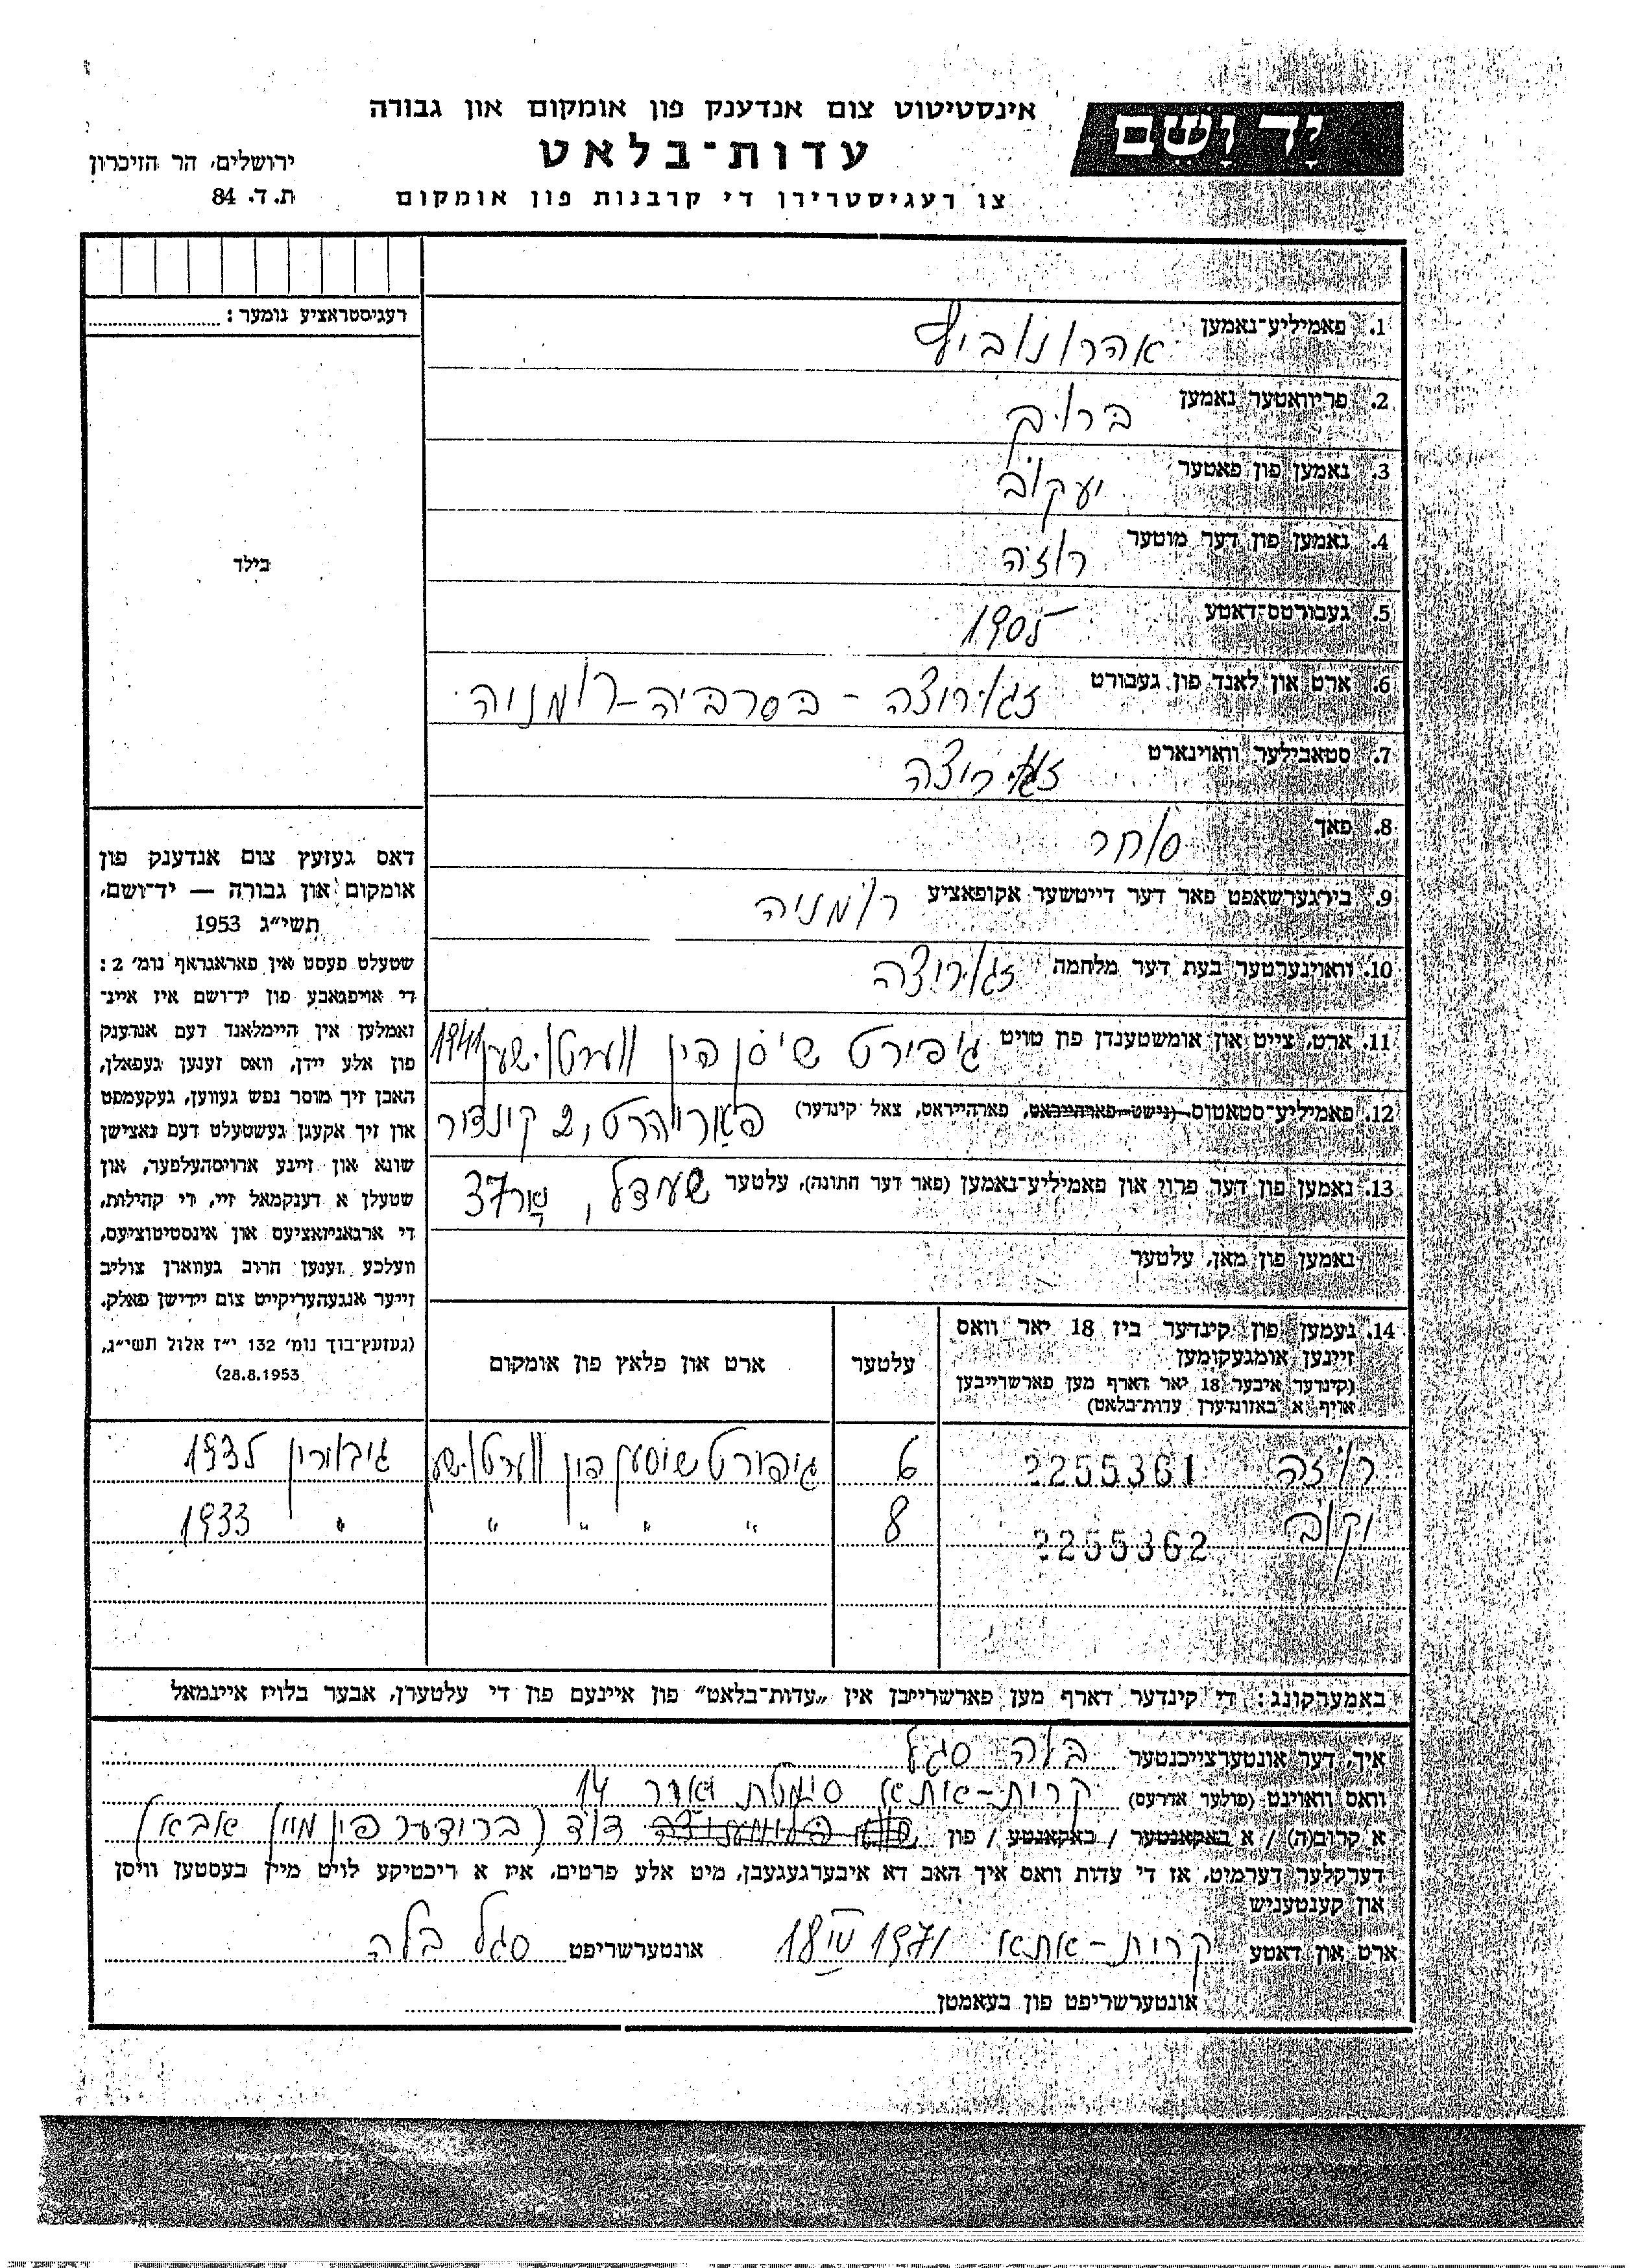 יָד וָשֵׁם
אינסטיטוט צום אנדענק פון אומקום און גבורה
עדות־בלאט
צו רעגיסטרירן די קרבנות פון אומקום
ירושלים, הר הזיכרון
ת. ד. 84
רעגיסטראציע נומער :
בילד
1. פאמיליע־נאמען אהרונוביץ
2. פריוואטער נאמען ברוך
3. נאמען פון פאטער יעקוב
4. נאמען פון דער מוטער רוזה
5. געבורטס־דאטע 1905
6. ארט און לאנד פון געבורט זגוריצה - בסרביה - רומניה
7. סטאבילער וואוינארט זגוריצה
8. פאך סוחר
9. בירגערשאפט פאר דער דייטשער אקופאציע רומניה
10. וואוינערטער בעת דער מלחמה זגוריצה
11. ארט, צייט און אומשטענדן פון טויט 1941
12. פאמיליע־סטאטוס (נישט פארהייראט, פארהייראט, צאל קינדער) 2 קונדור
13. נאמען פון דער פרוי און פאמיליע־נאמען (פאר דער חתונה), עלטער שיינדל, 37
נאמען פון מאן, עלטער
14. נעמען פון קינדער ביז 18 יאר וואס
זיינען אומגעקומען
(קינדער איבער 18 יאר דארף מען פארשרייבען
אויף א באזונדערן עדות־בלאט)
עלטער
ארט און פלאץ פון אומקום
רוזה 2255361 6 1935
יקוב 2255362 8 " " " " " 1933
דאס געזעץ צום אנדענק פון
אומקום און גבורה — יד־ושם,
תשי״ג 1953
שטעלט פעסט אין פאראגראף נומ׳ 2 :
די אויפגאבע פון יד־ושם איז איינ־
זאמלען אין היימלאנד דעם אנדענק
פון אלע יידן, וואס זענען געפאלן,
האבן זיך מוסר נפש געווען, געקעמפט
און זיך אקעגן געשטעלט דעם נאצישן
שונא און זיינע ארויסהעלפער, און
שטעלן א דענקמאל זיי, די קהילות,
די ארגאניזאציעס און אינסטיטוציעס,
וועלכע זענען חרוב געווארן צוליב
זייער אנגעהעריקייט צום יידישן פאלק.
(געזעץ־בוך נומ׳ 132 י״ז אלול תשי״ג,
28.8.1953)
באמערקונג : די קינדער דארף מען פארשרייבן אין „עדות־בלאט” פון איינעם פון די עלטערן, אבער בלויז איינמאל
איך, דער אונטערצייכנטער בלה סגל
וואס וואוינט (פולער אדרעס) קרית-אתא סימטת יאיר 14
א קרוב(ה) / א באקאנטער / באקאנטע / פון דוד (ברודער פין מיין אבא)
דערקלער דערמיט, אז די עדות וואס איך האב דא איבערגעגעבן, מיט אלע פרטים, איז א ריכטיקע לויט מיין בעסטען וויסן
און קענטעניש
ארט און דאטע קרית-אתא 1971 18 אונטערשריפט סגל בלה
אונטערשריפט פון באאמטן